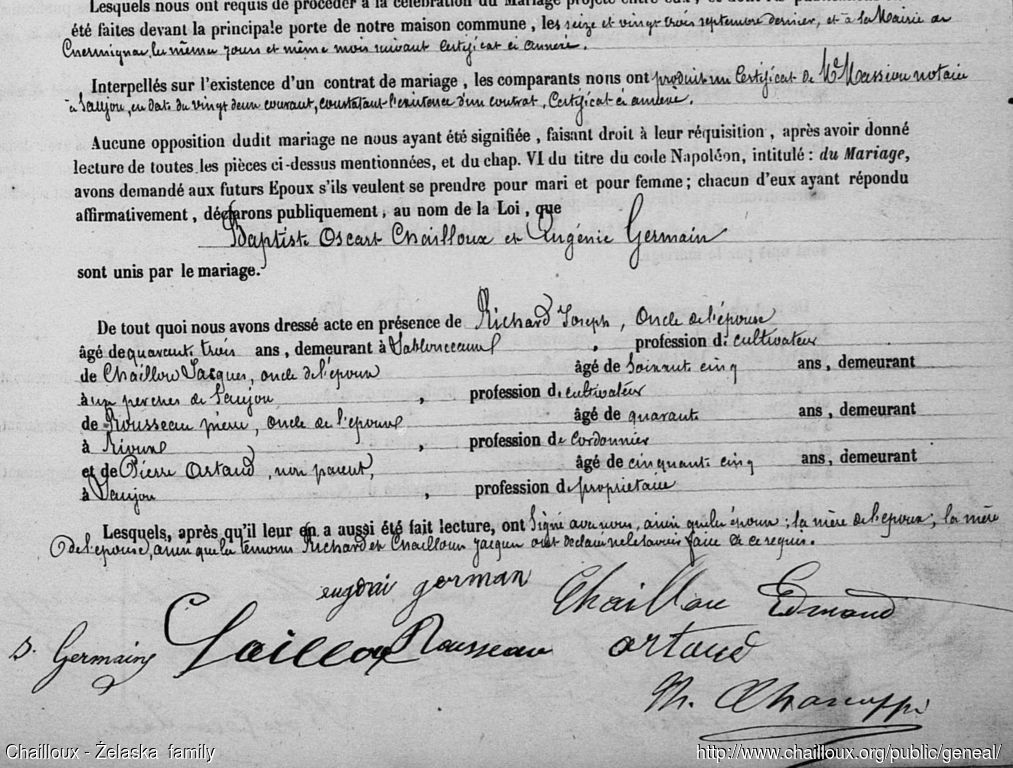 Lesquels nous ont requis de procéder à la célébration du Mariage projeté entre eux, et dont
été faites devant la principale porte de notre maison commune, les seize et vingt trois septembre dernier, et à la Mairie de
le même jours et même mois suivant Certificat ci annexé.
Interpellés sur l'existence d'un contrat de mariage, les comparants nons ont produit un Certificat de Me Massiou notaire
à Saujon, en date du vingt deux courant, constatant l'existence d'un contrat, Certificat ci annexé.
Aucune opposition dudit mariage ne nous ayant été signifiée, faisant droit à leur réquisition, après avoir donné
lecture de toutes les pièces ci-dessus mentionnées, et du chap. VI du titre du code Napoléon, intitulé : du Mariage,
avons demandé aux futurs Epoux s'ils veulent se prendre pour mari et pour femme ; chacun d'eux ayant répondu
affirmativement, déclarons publiquement, au nom de la Loi, que
Baptiste Oscart Chailloux et Eugénie Germain
sont unis par le mariage.
De tout quoi nous avons dressé acte en présence de Richard Joseph, Oncle de l'épouse
âgé de quarante trois ans, demeurant à Sablonceaux, profession de cultivateur
de Chailloux Jacques, oncle de l'époux âgé de Soixante cinq ans, demeurant
à un perches de Saujon, profession de cultivateur
de Rousseau pierre, oncle de l'épouse âgé de quarante ans, demeurant
à Rioux, profession de Cordonnier
et de Pierre Artaud, non parent, âgé de cinquante cinq ans, demeurant
à Saujon, profession de propriétaire
Lesquels, après qu'il leur en a aussi été fait lecture, ont Signé avec nous, ainsi que les époux ; la mère de l'époux ; la mère
de l'épouse, ainsi que les temoins Richard et Chailloux Jacques ont déclaré ne le savoir faire de ce requis.
eugdrai german
Chaillou Edmond
S. Germain
Chailloux
Rousseau
artaud
Chailloux - Želaska family
http://www.chailloux.org/public/geneal/